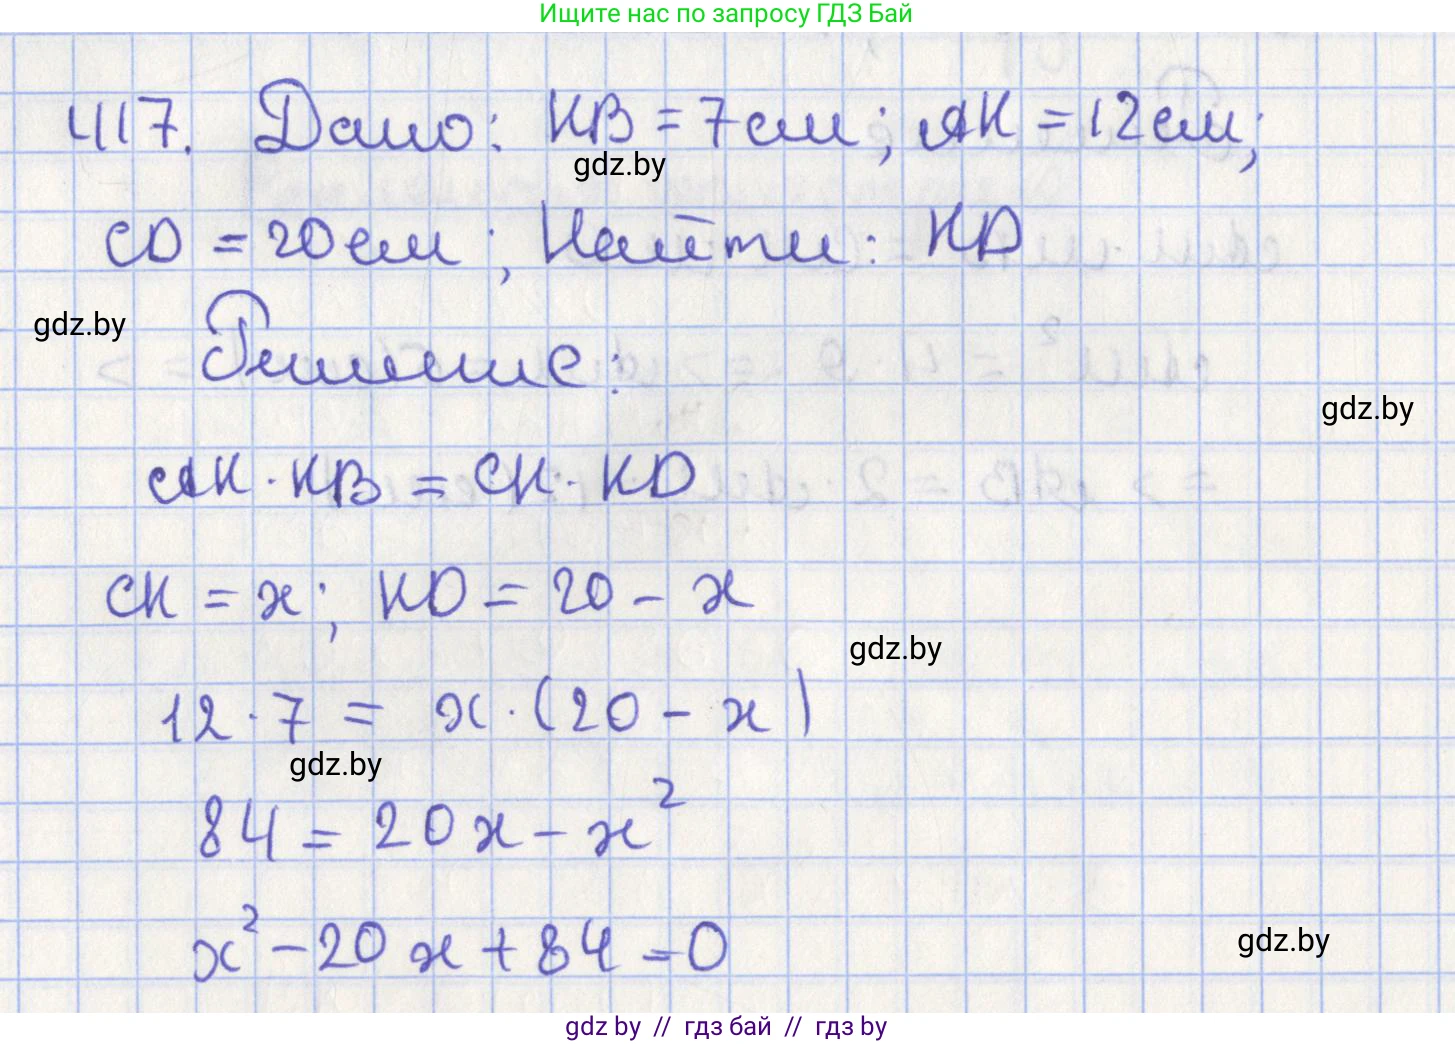 Ищите нас по запросу ГДЗ Бай
417. Дано: KB = 7 см; AK = 12 см;
gdz.by
CD = 20 см; Найти: KD
gdz.by
Решение:
gdz.by
AK · KB = CK · KD
CK = x; KD = 20 - x
gdz.by
12 · 7 = x · (20 - x)
gdz.by
84 = 20x - x²
x² - 20x + 84 = 0
gdz.by
gdz by // гдз бай // гдз by